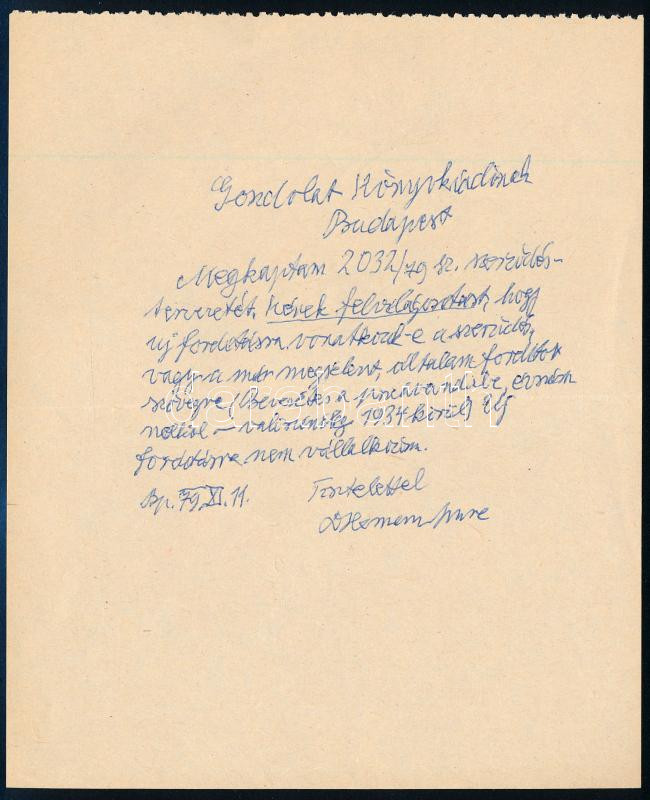 Gondolat Könyvkiadónak
Budapest
Megkaptam 2032/79 sz. szerződés-
tervezetét. Kérek felvilágosítást, hogy
új fordításra vonatkozik-e a szerződés,
vagy a már megjelent, általam fordított
szövegre (Bevezetés a, évszám
nélkül — valószínűleg 1934 körül) Új
fordításra nem vállalkozom.
Bp. 79. XI. 11. Tisztelettel
Imre
darabanth